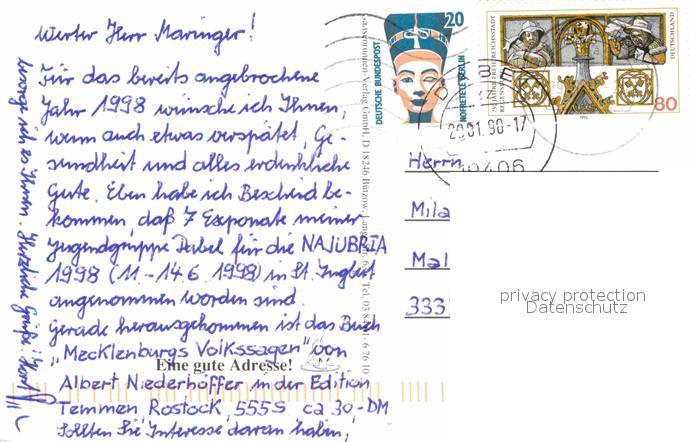 Werter Herr Maringer!
Für das bereits angebrochene
Jahr 1998 wünsche ich Ihnen,
wenn auch etwas verspätet, Ge-
sundheit und alles erdenkliche
Gute. Eben habe ich Bescheid be-
kommen, daß 7 Exponate meiner
Jugendgruppe Dabel für die NAJUBRIA
1998 (11.-14.6.1998) in St. Ingbert
angenommen worden sind.
Gerade herausgekommen ist das Buch
„Mecklenburgs Volkssagen" von
Albert Niederhöffer in der Edition
Temmen, Rostock, 555S, ca 30,-DM
Sollten Sie Interesse daran haben,
ich es Ihnen. Herzliche Grüße!
Eine gute Adresse!
20
DEUTSCHE BUNDESPOST
NOFRETETE BERLIN
DEUTSCHLAND
80
1995
20.01.98-17
Herrn
Mila
Mal
333
privacy protection
Datenschutz